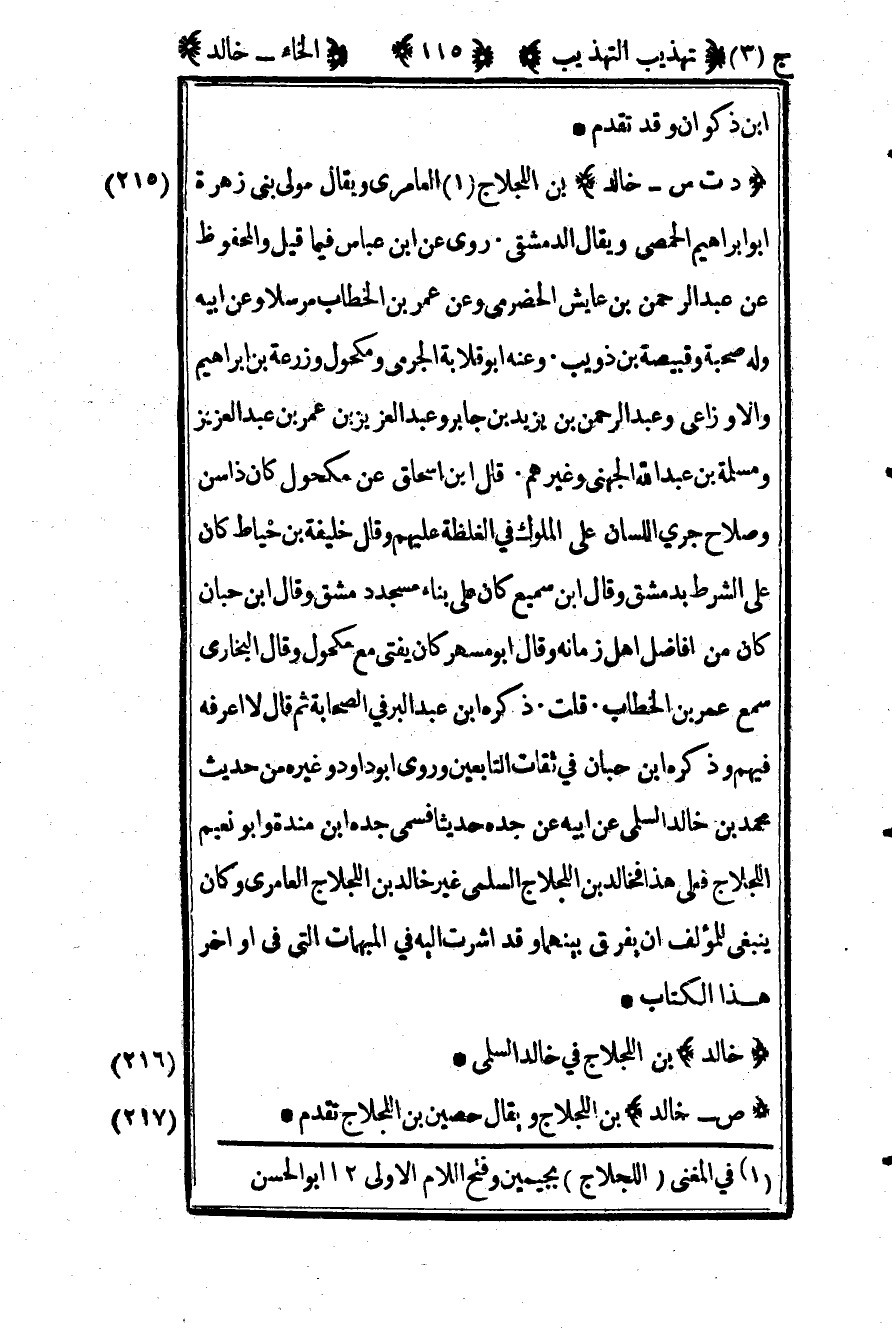 ج (٣) ﴿ تهذيب التهذيب ﴾ ﴿ ١١٥ ﴾ ﴿ الخاء ــ خالد ﴾
ابن ذكوان وقد تقدم •
﴿ د ت س ــ خالد ﴾ بن اللجلاج (١) العامرى ويقال مولى بنى زهرة (٢١٥)
ابو ابراهيم الحمصي ويقال الدمشقي · روى عن ابن عباس فيما قيل والمحفوظ
عن عبد الرحمن بن عايش الحضرمى وعن عمر بن الخطاب مرسلا وعن ابيه
وله صحبة وقبيصة بن ذويب · وعنه ابو قلابة الجرمى ومكحول وزرعة بن ابراهيم
والاوزاعى وعبد الرحمن بن يزيد بن جابر وعبد العزيز بن عمر بن عبد العزيز
ومسلمة بن عبد الله الجهنى وغيرهم · قال ابن اسحاق عن مكحول كان ذاسن
وصلاح جري اللسان على الملوك في الغلظة عليهم وقال خليفة بن خياط كان
على الشرط بدمشق وقال ابن سميع كان على بناء مسجد دمشق وقال ابن حبان
كان من افاضل اهل زمانه وقال ابو مسهر كان يفتى مع مكحول وقال البخارى
سمع عمر بن الخطاب · قلت · ذكره ابن عبد البر في الصحابة ثم قال لا اعرفه
فيهم وذكره ابن حبان في ثقات التابعين وروى ابو داود وغيره من حديث
محمد بن خالد السلمى عن ابيه عن جده حديثا فسمى جده ابن مندة وابو نعيم
اللجلاج فعلى هذا فخالد بن اللجلاج السلمى غير خالد بن اللجلاج العامرى وكان
ينبغى للمؤلف ان يفرق بينهما وقد اشرت اليه في المبهمات التي فى اواخر
هذا الكتاب •
﴿ خالد ﴾ بن اللجلاج في خالد السلمى • (٢١٦)
﴿ ص ــ خالد ﴾ بن اللجلاج ويقال حصين بن اللجلاج تقدم • (٢١٧)
(١) في المغنى ( اللجلاج ) بجيمين وفتح اللام الاولى ١٢ ابو الحسن